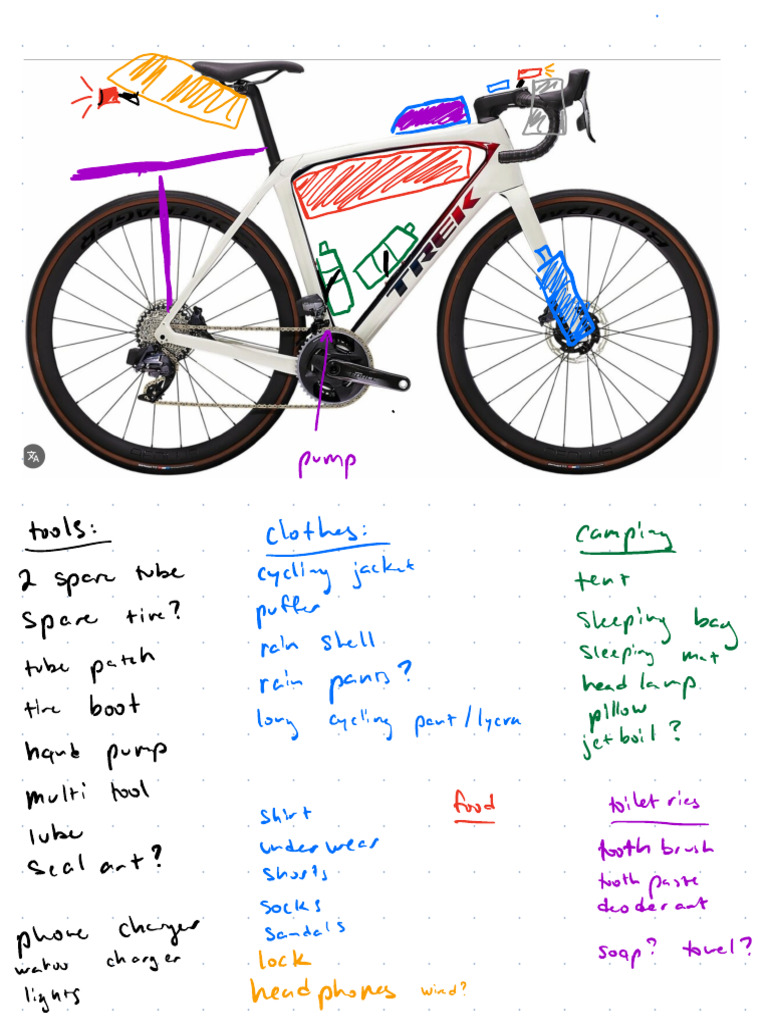 TREK
pump
tools:
2 spare tube
spare tire?
tube patch
tire boot
hand pump
multi tool
lube
sealant?
phone charger
wahoo charger
lights
clothes:
cycling jacket
puffer
rain shell
rain pants?
long cycling pant/lycra
shirt
underwear
shorts
socks
sandals
lock
headphones wind?
food
camping
tent
sleeping bag
sleeping mat
head lamp
pillow
jetboil?
toiletries
tooth brush
tooth paste
deoderant
soap? towel?